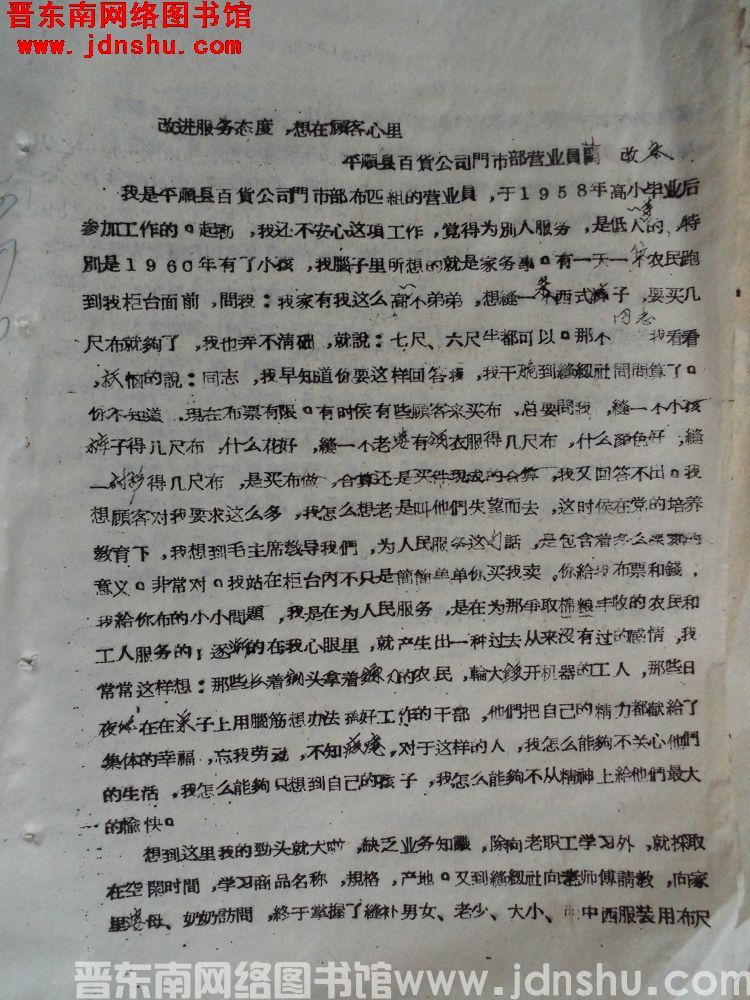 晋东南网络图书馆
www.jdnshu.com
改进服务态度,想在顧客心里
平順县百貨公司門市部营业員 改
我是平順县百貨公司門市部布匹組的营业員,于1958年高小毕业后
参加工作的。起初,我还不安心这項工作,覚得为別人服务,是低人一等的,特
別是1960年有了小孩,我腦子里所想的就是家务事。有一天一个农民跑
到我柜台面前,問我:我家有我这么高个弟弟,想縫一条西式裤子,要买几
尺布就夠了,我也弄不清础,就說:七尺、六尺半都可以。那个同志我看看
,的說:同志,我早知道份要这样回答我,我干脆到縫紉社問問算了。
份不知道,現在布票有限。有时侯有些顧客来买布,总要問我,縫一个小孩
裤子得几尺布,什么花好,縫一个老婆有衣服得几尺布,什么顔色好,縫
一衬衫得几尺布,是买布做,合算还是买件現成的合算,我又回答不出。我
想顧客对我要求这么多,我怎么想老是叫他們失望而去,这时侯在党的培养
敎育下,我想到毛主席敎导我們,为人民服务这句話,是包含着多么深要的
意义。非常对。我站在柜台內不只是簡簡单单份买我卖,你給我布票和錢,
我給你布的小小問題,我是在为人民服务,是在为那爭取棉粮丰收的农民和
工人服务的;逐渐的在我心眼里,就产生出一种过去从来沒有过的感情,我
常常这样想:那些长着头拿着的农民,輪大开机器的工人,那些日
夜在在桌子上用腦筋想办法搞好工作的干部,他們把自己的精力都献給了
集体的幸福,忘我劳动,不知疲倦,对于这样的人,我怎么能夠不关心他們
的生活,我怎么能夠只想到自己的孩子,我怎么能夠不从精神上給他們最大
的愉快。
想到这里我的劲头就大啦,缺乏业务知識,除向老职工学习外,就採取
在空閑时間,学习商品名称,規格,产地。又到縫紉社向老师傅請敎,向家
里婆母、奶奶訪問,終于掌握了縫补男女、老少、大小、中西服装用布尺
晋东南网络图书馆www.jdnshu.com